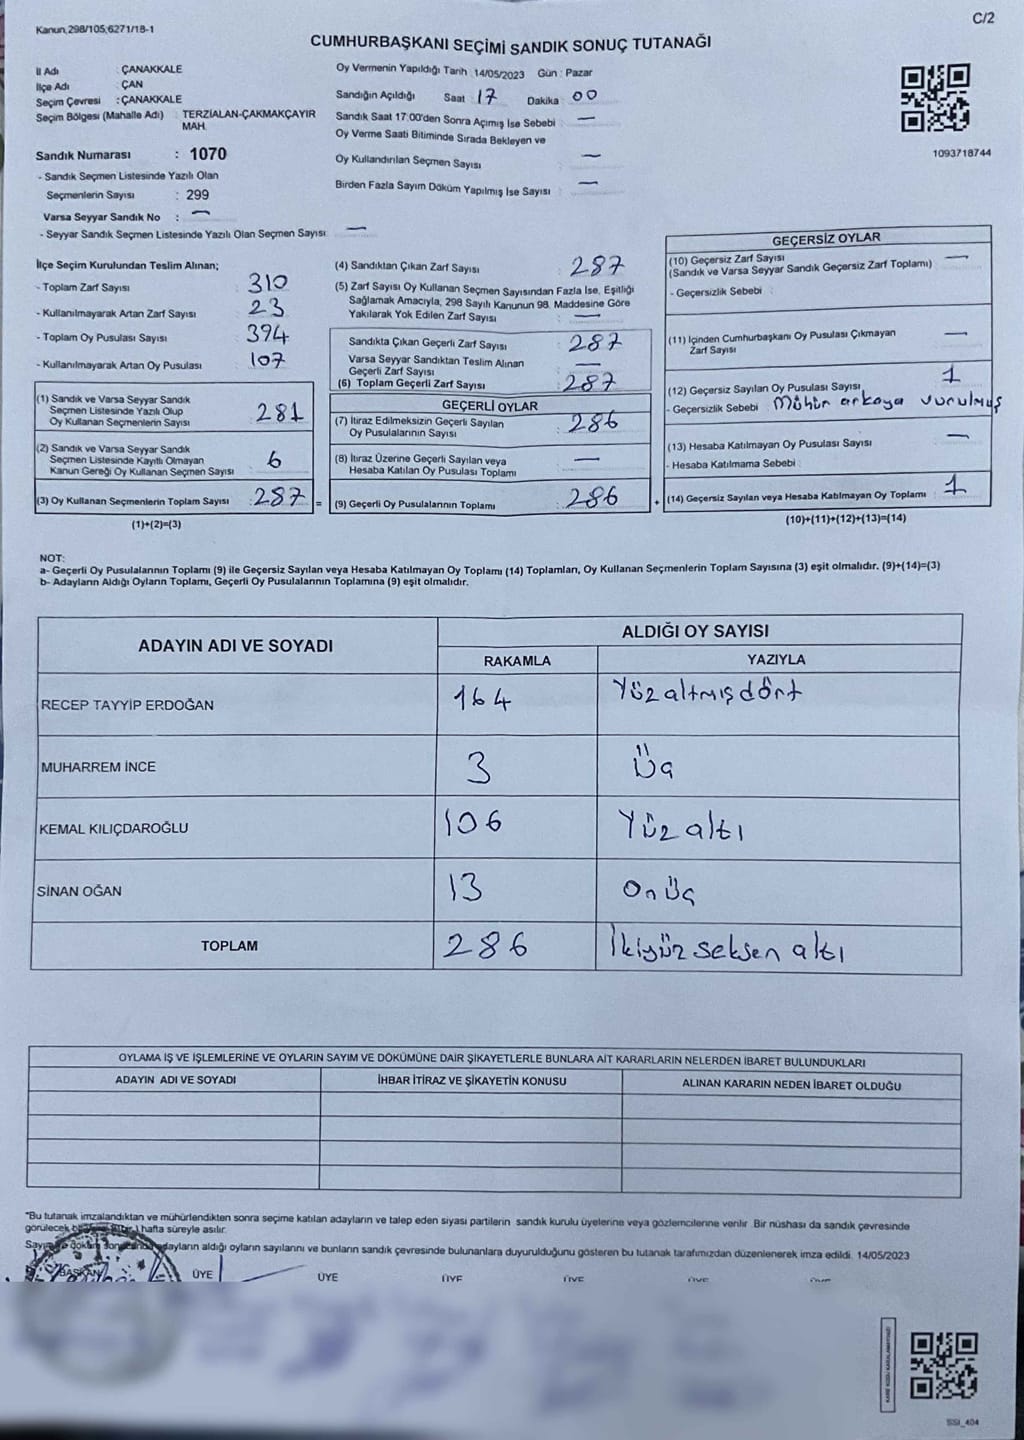 Kanun,298/105;6271/18-1
C/2
CUMHURBAŞKANI SEÇİMİ SANDIK SONUÇ TUTANAĞI
İl Adı : ÇANAKKALE
İlçe Adı : ÇAN
Seçim Çevresi : ÇANAKKALE
Seçim Bölgesi (Mahalle Adı) : TERZİALAN-ÇAKMAKÇAYIR
MAH.
Sandık Numarası : 1070
- Sandık Seçmen Listesinde Yazılı Olan
Seçmenlerin Sayısı : 299
Varsa Seyyar Sandık No : —
- Seyyar Sandık Seçmen Listesinde Yazılı Olan Seçmen Sayısı : —
Oy Vermenin Yapıldığı Tarih : 14/05/2023 Gün : Pazar
Sandığın Açıldığı Saat 17 Dakika 00
Sandık Saat 17:00'den Sonra Açımış İse Sebebi : —
Oy Verme Saati Bitiminde Sırada Bekleyen ve
Oy Kullandırılan Seçmen Sayısı : —
Birden Fazla Sayım Döküm Yapılmış İse Sayısı : —
1093718744
İlçe Seçim Kurulundan Teslim Alınan;
- Toplam Zarf Sayısı : 310
- Kullanılmayarak Artan Zarf Sayısı : 23
- Toplam Oy Pusulası Sayısı : 394
- Kullanılmayarak Artan Oy Pusulası : 107
(1) Sandık ve Varsa Seyyar Sandık
Seçmen Listesinde Yazılı Olup
Oy Kullanan Seçmenlerin Sayısı : 281
(2) Sandık ve Varsa Seyyar Sandık
Seçmen Listesinde Kayıtlı Olmayan
Kanun Gereği Oy Kullanan Seçmen Sayısı : 6
(3) Oy Kullanan Seçmenlerin Toplam Sayısı : 287 =
(1)+(2)=(3)
(4) Sandıktan Çıkan Zarf Sayısı : 287
(5) Zarf Sayısı Oy Kullanan Seçmen Sayısından Fazla İse, Eşitliği
Sağlamak Amacıyla, 298 Sayılı Kanunun 98. Maddesine Göre
Yakılarak Yok Edilen Zarf Sayısı : —
Sandıkta Çıkan Geçerli Zarf Sayısı : 287
Varsa Seyyar Sandıktan Teslim Alınan
Geçerli Zarf Sayısı : —
(6) Toplam Geçerli Zarf Sayısı : 287
GEÇERLİ OYLAR
(7) İtiraz Edilmeksizin Geçerli Sayılan
Oy Pusulalarının Sayısı : 286
(8) İtiraz Üzerine Geçerli Sayılan veya
Hesaba Katılan Oy Pusulası Toplamı : —
(9) Geçerli Oy Pusulalarının Toplamı : 286 +
GEÇERSİZ OYLAR
(10) Geçersiz Zarf Sayısı : —
(Sandık ve Varsa Seyyar Sandık Geçersiz Zarf Toplamı)
- Geçersizlik Sebebi :
(11) İçinden Cumhurbaşkanı Oy Pusulası Çıkmayan
Zarf Sayısı : —
(12) Geçersiz Sayılan Oy Pusulası Sayısı : 1
- Geçersizlik Sebebi : Mühür arkaya vurulmuş
(13) Hesaba Katılmayan Oy Pusulası Sayısı : —
- Hesaba Katılmama Sebebi :
(14) Geçersiz Sayılan veya Hesaba Katılmayan Oy Toplamı : 1
(10)+(11)+(12)+(13)=(14)
NOT:
a- Geçerli Oy Pusulalarının Toplamı (9) ile Geçersiz Sayılan veya Hesaba Katılmayan Oy Toplamı (14) Toplamları, Oy Kullanan Seçmenlerin Toplam Sayısına (3) eşit olmalıdır. (9)+(14)=(3)
b- Adayların Aldığı Oyların Toplamı, Geçerli Oy Pusulalarının Toplamına (9) eşit olmalıdır.
ADAYIN ADI VE SOYADI ALDIĞI OY SAYISI
RAKAMLA YAZIYLA
RECEP TAYYİP ERDOĞAN 164 Yüzaltmışdört
MUHARREM İNCE 3 Üç
KEMAL KILIÇDAROĞLU 106 Yüz altı
SİNAN OĞAN 13 On Üç
TOPLAM 286 İkiyüz seksen altı
OYLAMA İŞ VE İŞLEMLERİNE VE OYLARIN SAYIM VE DÖKÜMÜNE DAİR ŞİKAYETLERLE BUNLARA AİT KARARLARIN NELERDEN İBARET BULUNDUKLARI
ADAYIN ADI VE SOYADI İHBAR İTİRAZ VE ŞİKAYETİN KONUSU ALINAN KARARIN NEDEN İBARET OLDUĞU
"Bu tutanak imzalandıktan ve mühürlendikten sonra seçime katılan adayların ve talep eden siyasi partilerin sandık kurulu üyelerine veya gözlemcilerine verilir. Bir nüshası da sandık çevresinde
görülecek hafta süreyle asılır.
Sayım ve döküm sonucunda adayların aldığı oyların sayılarını ve bunların sandık çevresinde bulunanlara duyurulduğunu gösteren bu tutanak tarafımızdan düzenlenerek imza edildi. 14/05/2023
BAŞKAN ÜYE ÜYE ÜYE ÜYE ÜYE ÜYE
SSI_404